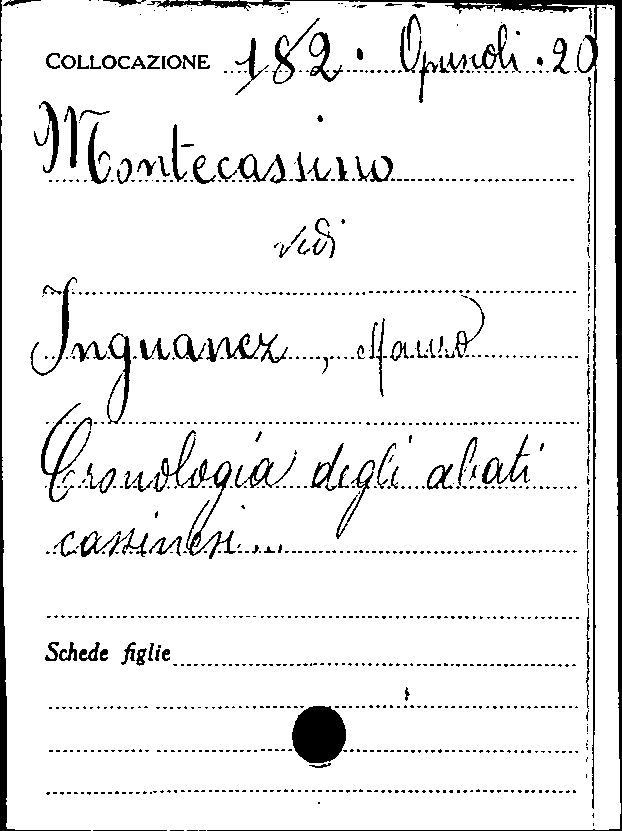 COLLOCAZIONE 182. Opuscoli. 20
Montecassino
vedi
Inguanez, Mauro
Cronologia degli abati
cassinesi...
Schede figlie